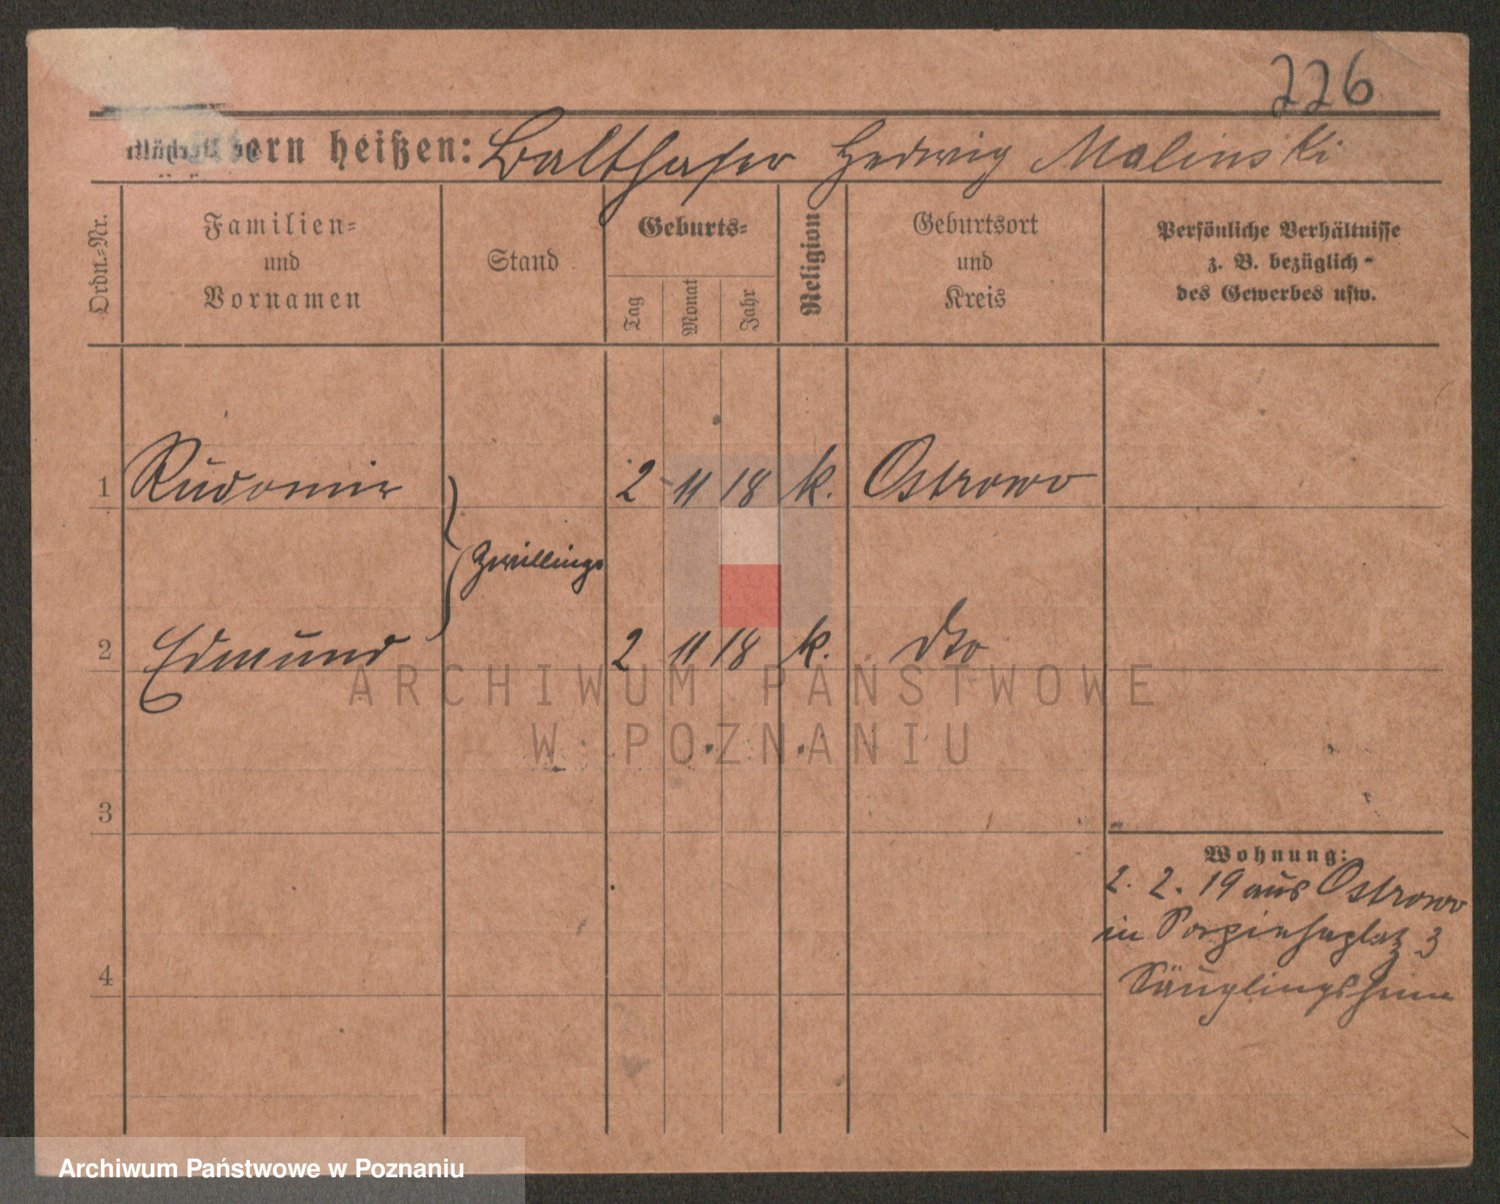 226
ern heißen: Balthasar Hedwig Malinski
Ordn.-Nr.
Familien-
und
Vornamen
Stand
Geburts-
Tag
Monat
Jahr
Religion
Geburtsort
und
Kreis
Persönliche Verhältnisse
z. B. bezüglich
des Gewerbes usw.
1 2 11 18 k. Ostrowo
Zwillinge
2 Edmund 2 11 18 k. dto
ARCHIWUM PAŃSTWOWE
W POZNANIU
3
Wohnung:
2. 2. 19 aus Ostrowo
in 3
4
Säuglingsheim
Archiwum Państwowe w Poznaniu